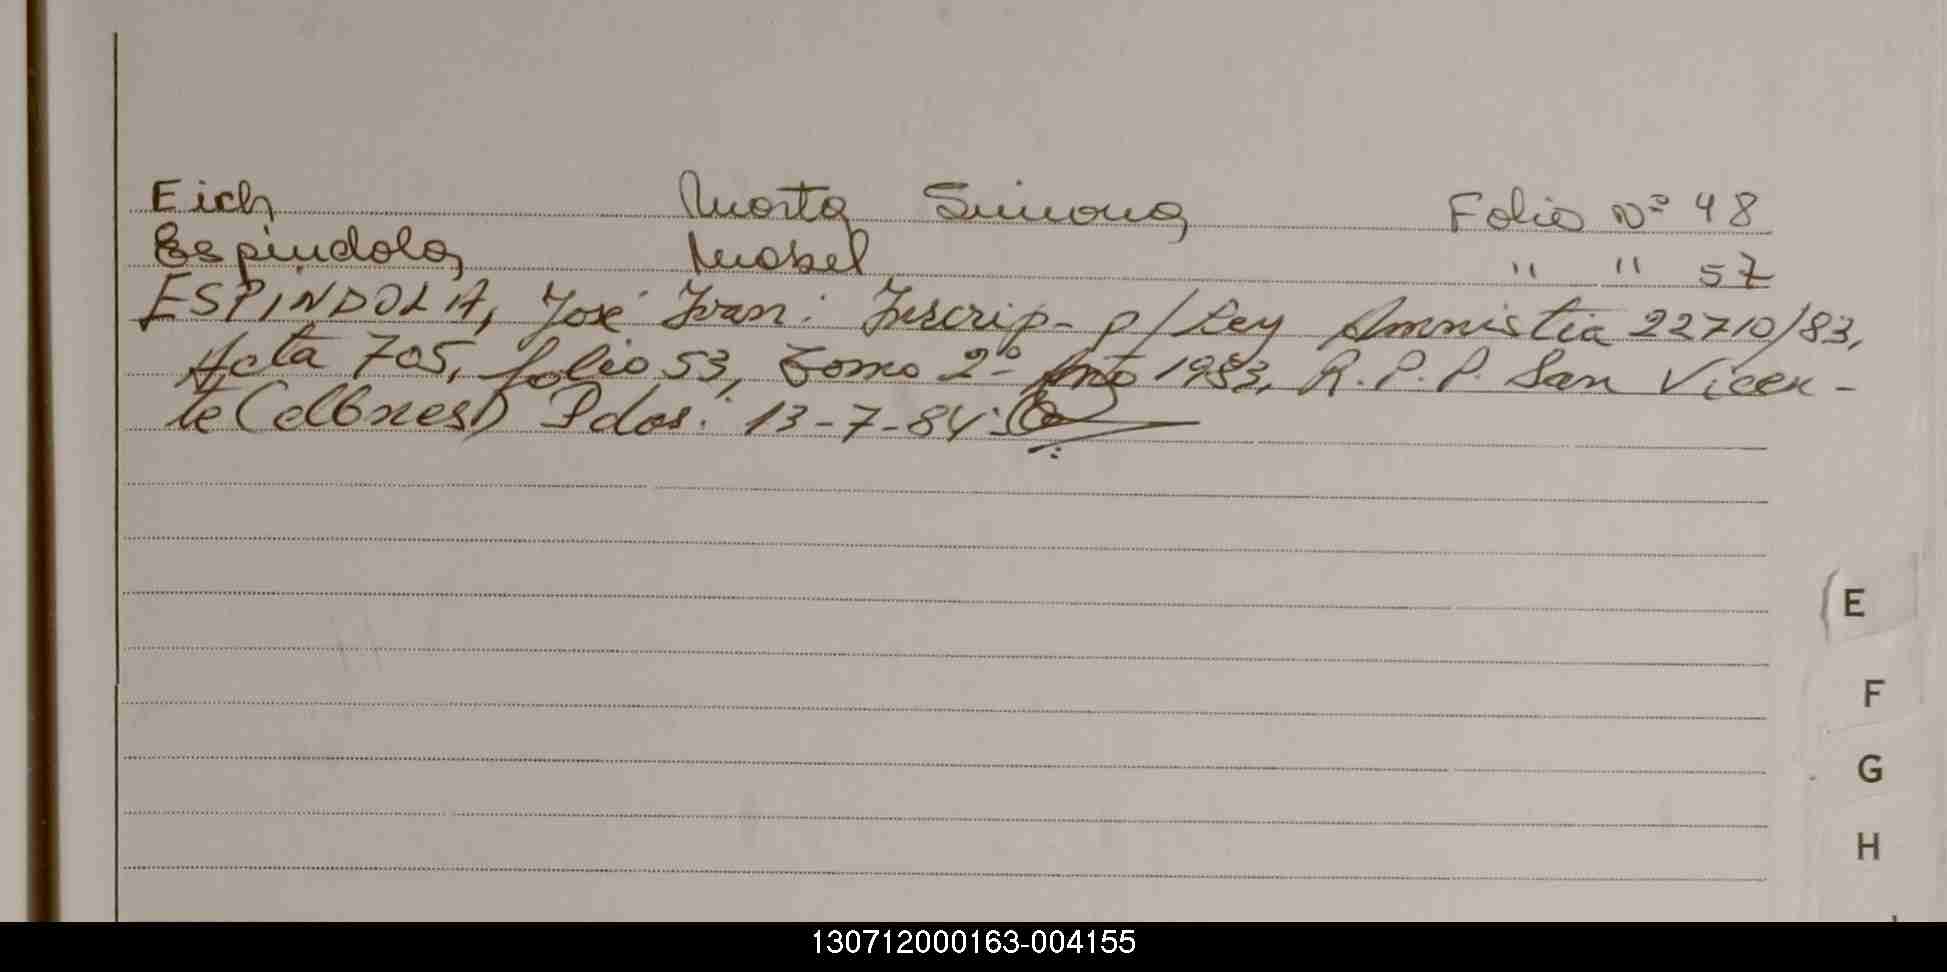 Eich Marta Simona Folio Nº 48
Espindola, Mabel " " 57
ESPINDOLA, José Ivan: Inscrip- p/Ley Amnistia 22710/83,
Acta 705, folio 53, Tomo 2º Año 1983, R.P.P. San Vicen-
te (Mbnes) Pdas. 13-7-84
E
F
G
H
130712000163-004155